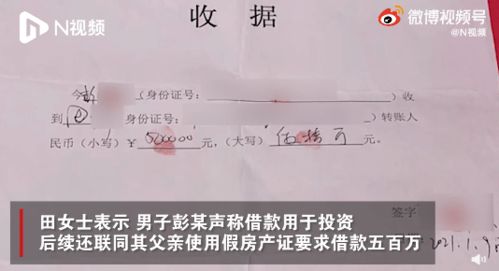 N视频
微博视频号
@N视频
收 据
今 (身份证号: )收
到 身份证号: )转账人
民币(小写)¥ 500000 元,(大写) 伍拾万 元。
签字
2021.1.9
田女士表示 男子彭某声称借款用于投资
后续还联同其父亲使用假房产证要求借款五百万